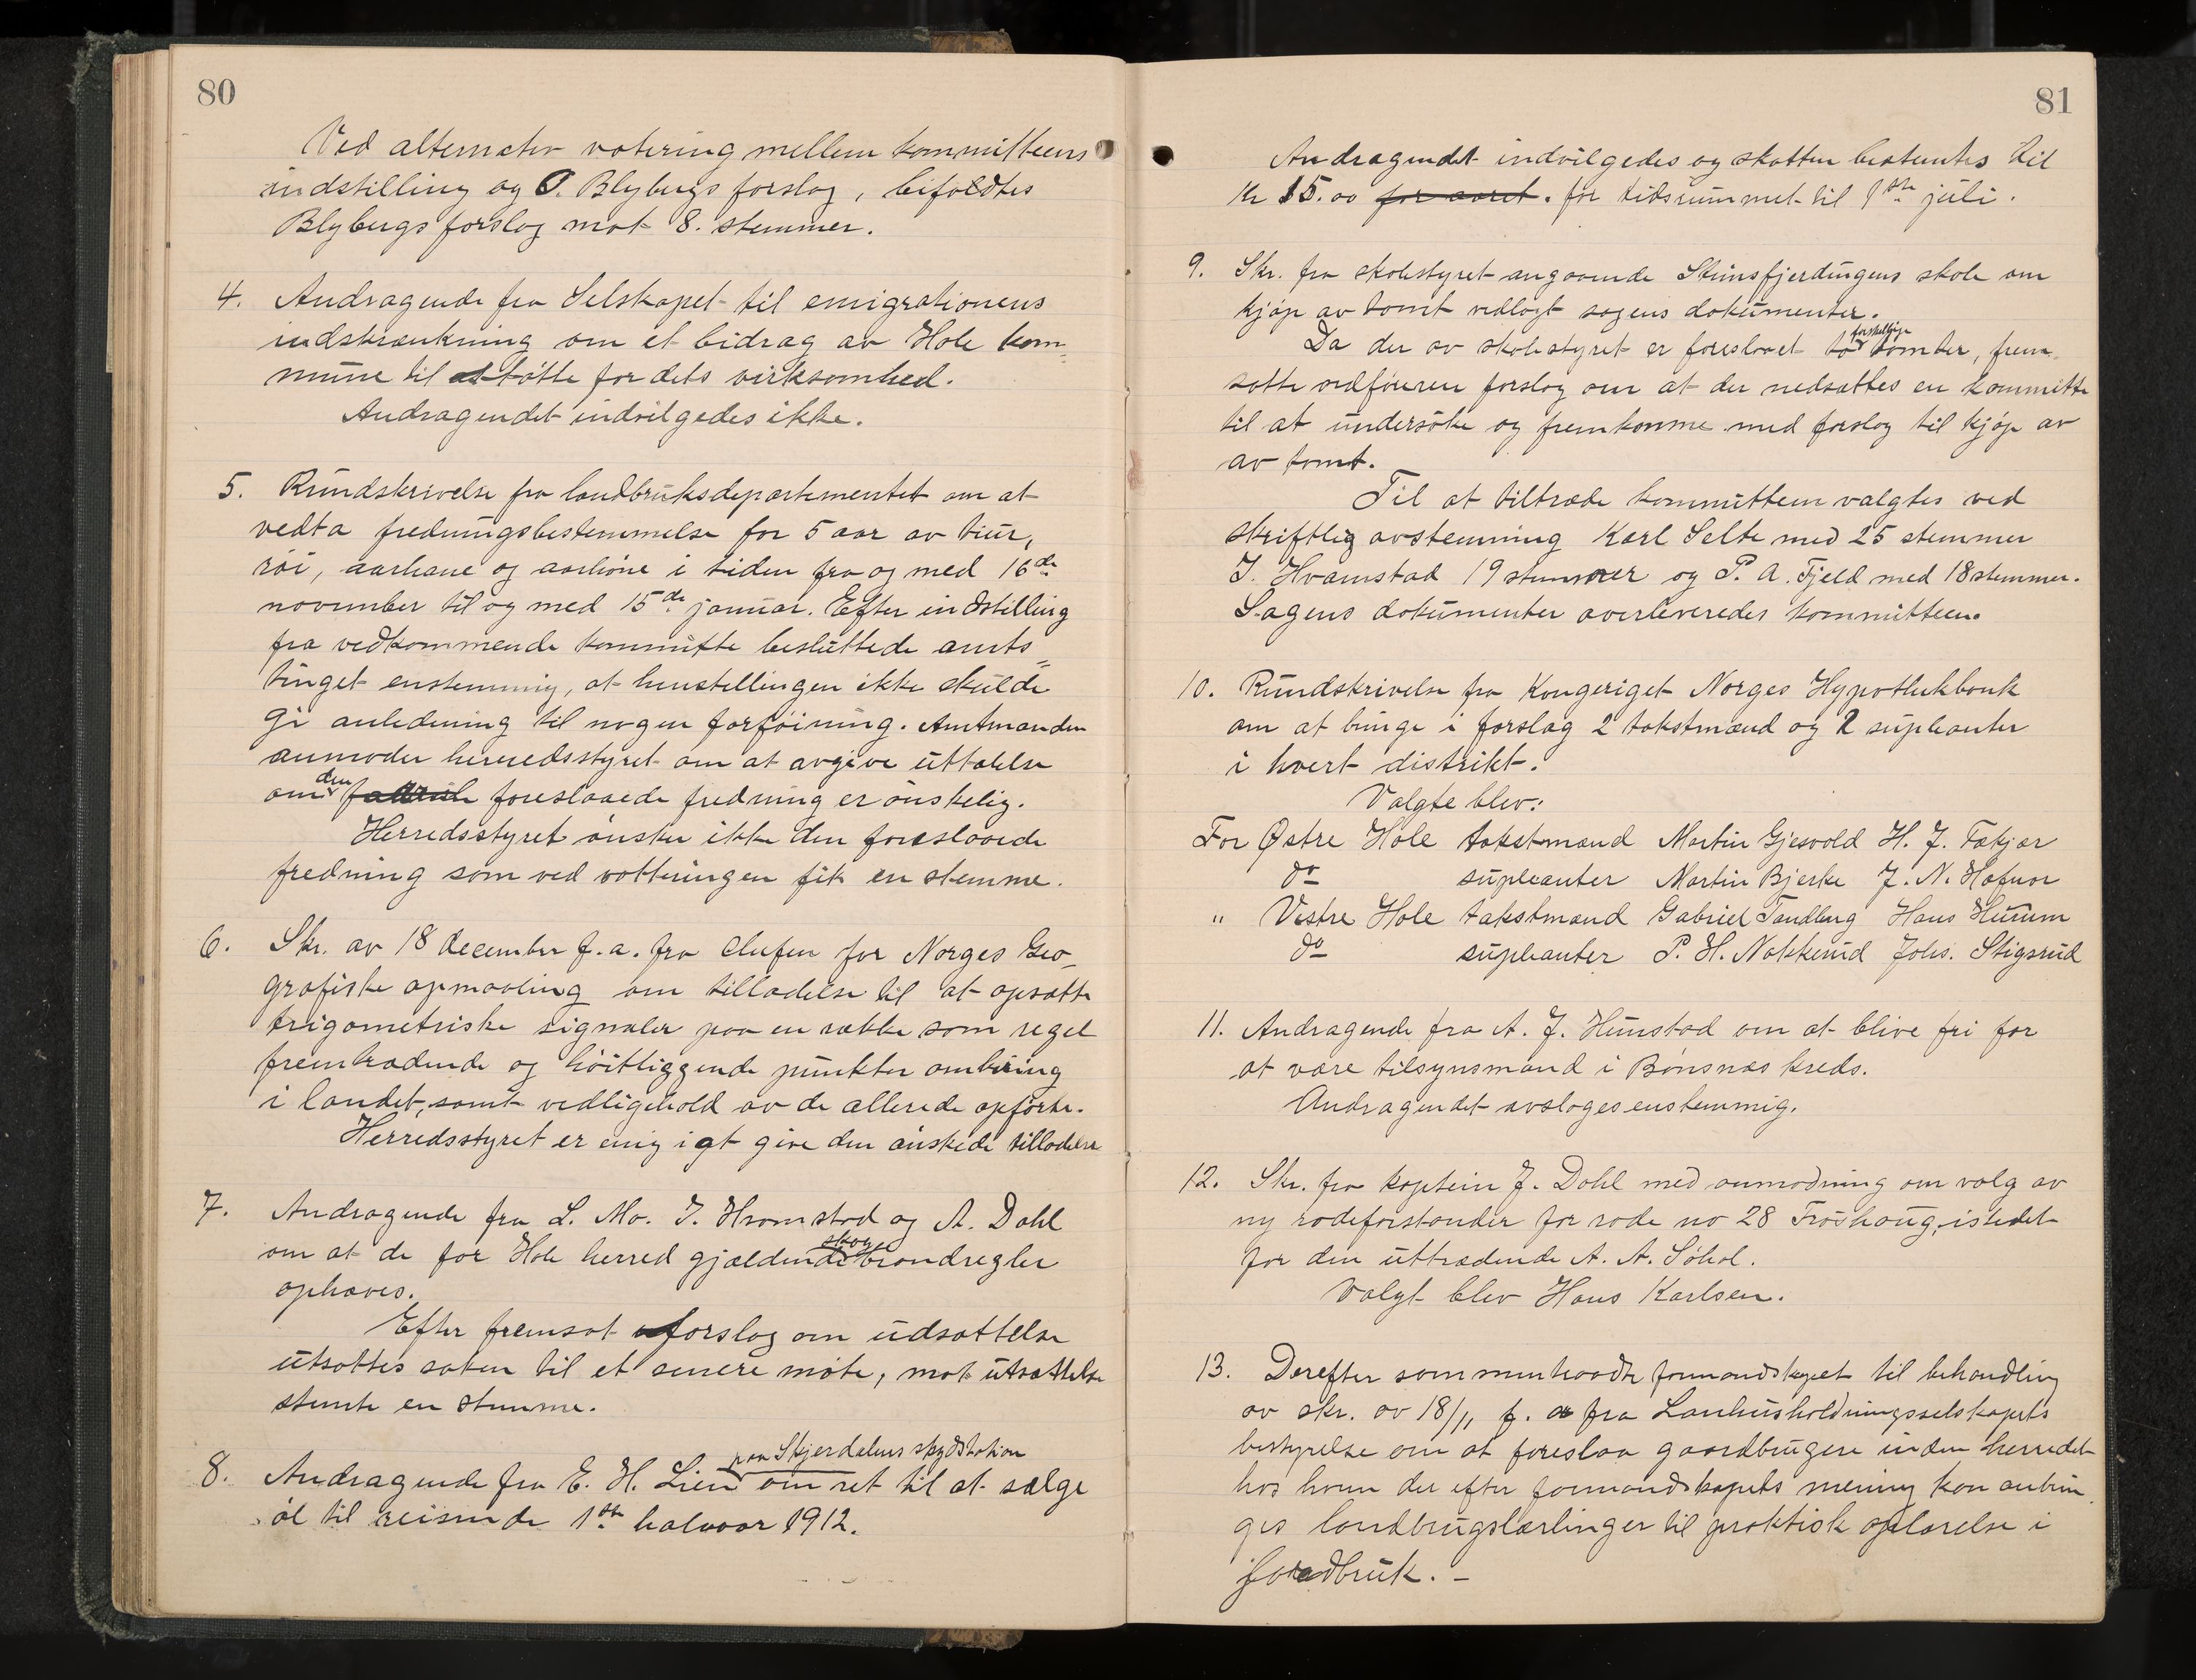 80
Ved alternativ votering mellem kommitteens
indstilling og O. Blybergs forslag, bifaldtes
Blybergs forslag mot 8. stemmer.
4. Andragende fra Selskapet til emigrationens
indskrænkning om et bidrag av Hole kom-
mune til støtte for dets virksomhed.
Andragendet indvilgedes ikke.
5. Rundskrivelse fra landbruksdepartementet om at
vedta fredningsbestemmelse for 5 aar av tiur,
røi, aarhane og aarhöne i tiden fra og med 16de
november til og med 15de januar. Efter indstilling
fra vedkommende kommitte besluttede amts-
tinget enstemmig, at henstillingen ikke skulde
gi anledning til nogen forföining. Amtmanden
anmoder herredsstyret om at avgive uttalelse
om den foreslaaede fredning er önskelig.
Herredsstyret önsker ikke den foreslaaede
fredning som ved votteringen fik en stemme.
6. Skr. av 18 december f.a. fra chefen for Norges Geo-
grafiske opmaaling om tilladelse til at opsætte
trigometriske signaler paa en række som regel
fremtrædende og höitliggende punkter omkring
i landet, samt vedligehold av de allerede opførte.
Herredsstyret er enig i at give den önskede tilladelse
7. Andragende fra L. Mo. I. Hvamstad og A. Dahl
om at de for Hole herred gjældende skogbrandregler
ophæves.
Efter fremsat forslag om udsættelse
utsattes saken til et senere møte, mot utsættelse
stemte en stemme.
8. Andragende fra E. H. Lien paa Skjerdalens skydsstation om ret til at sælge
øl til reisende 1ste halvaar 1912.
81
Andragendet indvilgedes og skatten bestemtes til
kr 15.00 for aaret. for tidsrummet til 1ste juli.
9. Skr. fra skolestyret angaaende Steinsfjerdingens skole om
kjøp av tomt vedlagt sagens dokumenter.
Da der av skolestyret er foreslaaet to forskellige tomter, frem-
satte ordföreren forslag om at der nedsættes en kommitte
til at undersöke og fremkomme med forslag til kjøp av
av tomt.
Til at tiltræde kommitteen valgtes ved
skriftlig avstemning Karl Selte med 25 stemmer
I. Hvamstad 19 stemmer og P. A. Fjeld med 18 stemmer.
Sagens dokumenter overleveredes kommitteen.
10. Rundskrivelse fra Kongeriget Norges Hypothekbank
om at bringe i forslag 2 takstmænd og 2 supleanter
i hvert distrikt.
Valgte blev:
For Østre Hole takstmænd Martin Gjesvold H. J. Fækjær
do supleanter Martin Bjerke J. N. Hafnor
" Vestre Hole takstmænd Gabriel Tandberg Hans Hurum
do supleanter P. H. Nakkerud Johs. Stigsrud
11. Andragende fra A. J. Hunstad om at blive fri for
at være tilsynsmand i Bönsnæs kreds.
Andragendet avsloges enstemmig.
12. Skr. fra kaptein J. Dahl med anmodning om valg av
ny rodeforstander for rode no 28 Fröshaug, istedet
for den uttrædende A. A. Søhol.
Valgt blev Hans Karlsen.
13. Derefter sammentraadte formandskapet til behandling
av skr. av 18/11 f. a fra Lanhusholdningsselskapets
bestyrelse om at foreslaa gaardbrugere inden herredet
hos hvem der efter formandskapets mening kan anbrin-
ges landbrugslærlinger til praktisk oplærelse i
jordbruk. -